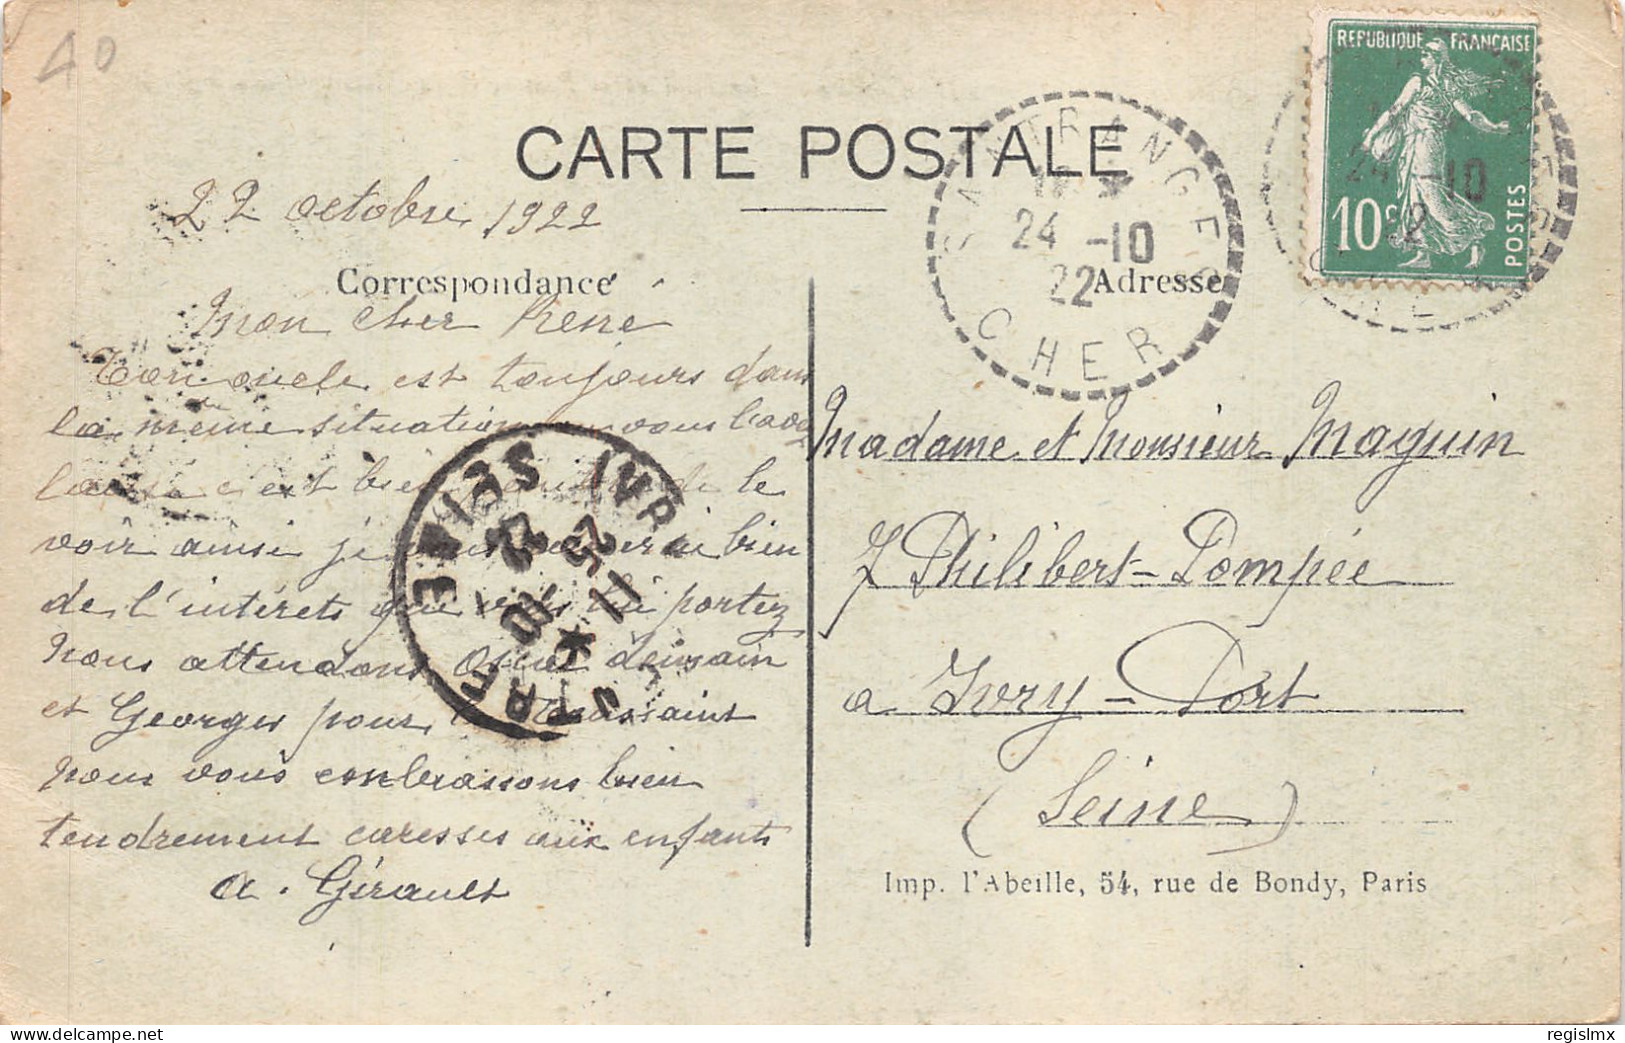 40
CARTE POSTALE
22 octobre 1922
Correspondance
Mon cher René
Ton oncle est toujours dans
la même situation vous l'avez
c'est bien de le
voir ainsi je bien
de l'intérêts que vous lui portez
nous attendons demain
et Georges pour la Toussaint
nous vous embrassons bien
tendrement caresses aux enfants
A. Girault
SANTRANGES
24 -10
22
CHER
REPUBLIQUE FRANÇAISE
10c
POSTES
24 -10
22
Adresse
Madame et Monsieur Maquin
7 Philibert-Pompée
a Ivry-Port
(Seine)
IVRY
SEINE
Imp. l'Abeille, 54, rue de Bondy, Paris
delcampe.net
regislmx